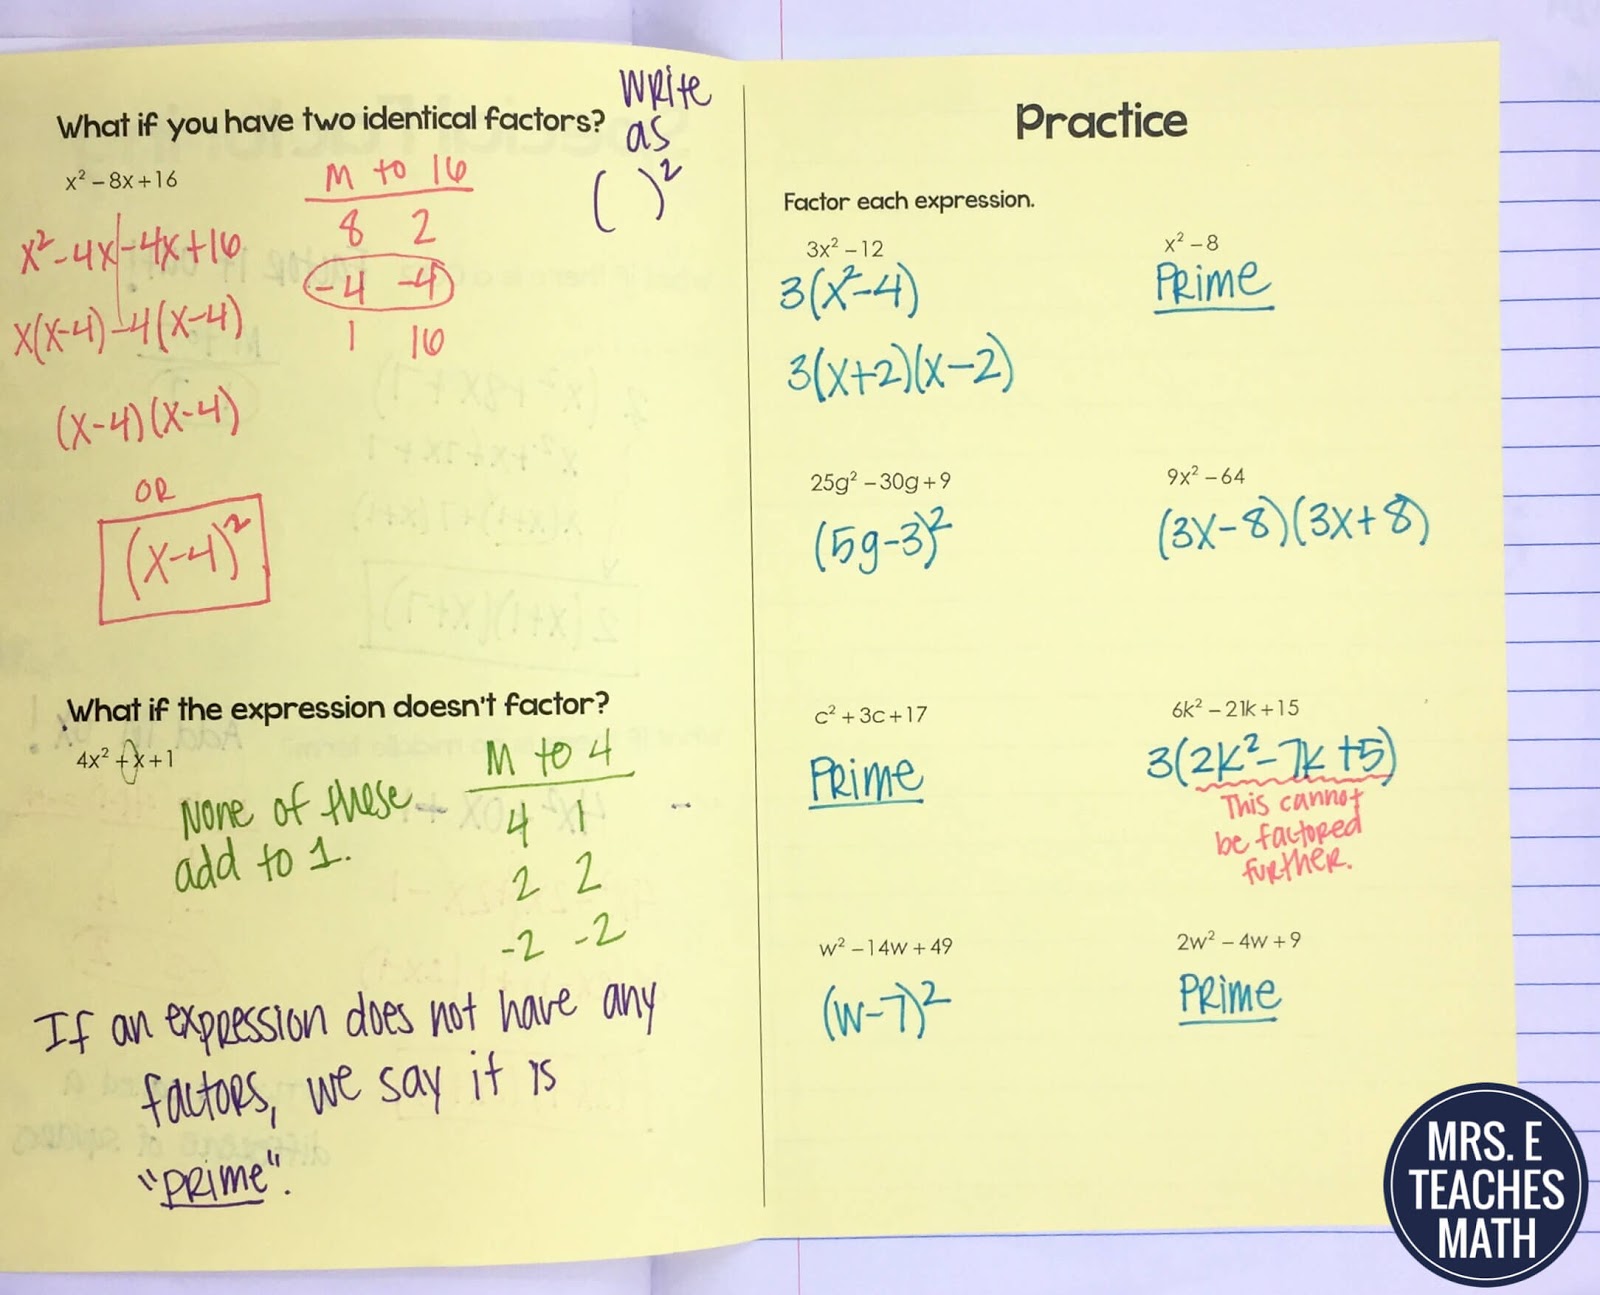 What if you have two identical factors?
write
as
( )²
x² – 8x + 16
x² - 4x - 4x + 16
x(x-4) - 4(x-4)
(x-4)(x-4)
OR
(x-4)²
M to 16
8 2
-4 -4
1 16
What if the expression doesn't factor?
4x² + x + 1
None of these
add to 1.
M to 4
4 1
2 2
-2 -2
If an expression does not have any
factors, we say it is
"prime".
Practice
Factor each expression.
3x² – 12
3(x²-4)
3(x+2)(x-2)
x² – 8
Prime
25g² – 30g + 9
(5g-3)²
9x² – 64
(3x-8)(3x+8)
c² + 3c + 17
Prime
6k² – 21k + 15
3(2k² - 7k + 5)
This cannot
be factored
further.
w² – 14w + 49
(w-7)²
2w² – 4w + 9
Prime
MRS. E
TEACHES
MATH